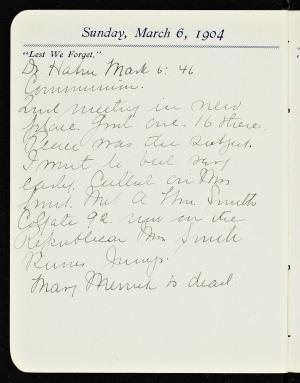 Sunday, March 6, 1904
"Lest We Forget."
Dr Hahn Mark 6:46
Communion.
2nd meeting in new
place. Good one. 16 there.
Peace was the subject.
I went to bed very
early. Called on Mrs
Hunt. Met A Wm. Smith
Colgate 92 now on the
Republican Mrs Smith
Runs Jump.
Mary Merrick is dead